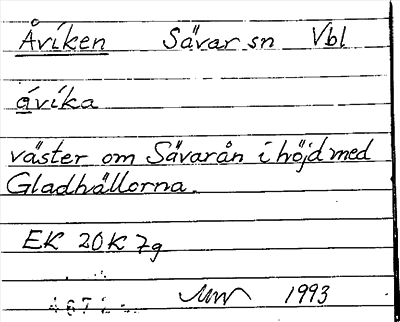 Åviken Sävar sn Vbl
åvika
väster om Sävarån i höjd med
Gladhällorna.
EK 20K 7g
1993